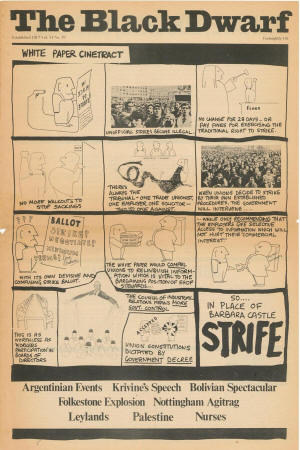 The Black Dwarf
Established 1817 Vol.
Fortnightly
WHITE PAPER CINETRACT
RIGHT
TO
STRIKE
UNOFFICIAL STRIKES BECOME ILLEGAL.
Fines
NO CHANGE FOR 28 DAYS.. OR
PAY FINES FOR EXERCISING THE
TRADITIONAL RIGHT TO STRIKE.
NO MORE WALKOUTS TO
STOP SACKINGS
THERE'S
ALWAYS THE
TRIBUNAL - ONE TRADE UNIONIST,
ONE EMPLOYER, ONE SOLICITOR -
TWO TO ONE AGAINST.
WHEN UNIONS DECIDE TO STRIKE
BY THEIR OWN ESTABLISHED
PROCEDURES, THE GOVERNMENT
WILL INTERVENE
BALLOT
WITH ITS OWN DEVISIVE AND
CONFUSING STRIKE BALLOT.
THE WHITE PAPER WOULD COMPEL
UNIONS TO RELINQUISH INFORM-
ATION WHICH IS VITAL TO THE
BARGAINING POSITION OF SHOP
STEWARDS.
...WHILE ONLY RECOMMENDING THAT
THE EMPLOYERS GIVE SELECTIVE
ACCESS TO INFORMATION WHICH WILL
NOT HURT THEIR COMMERCIAL
INTEREST.
THIS IS AS
WORTHLESS AS
WORKERS
PARTICIPATION IN
BOARDS OF
DIRECTORS
THE COUNCIL OF INDUSTRIAL
RELATIONS MEANS MORE
GOVT. CONTROL
UNION CONSTITUTIONS
DICTATED BY
GOVERNMENT DECREE
SO....
IN PLACE OF
BARBARA CASTLE
STRIFE
Argentinian Events Krivine's Speech Bolivian Spectacular
Folkestone Explosion Nottingham Agitrag
Leylands Palestine Nurses